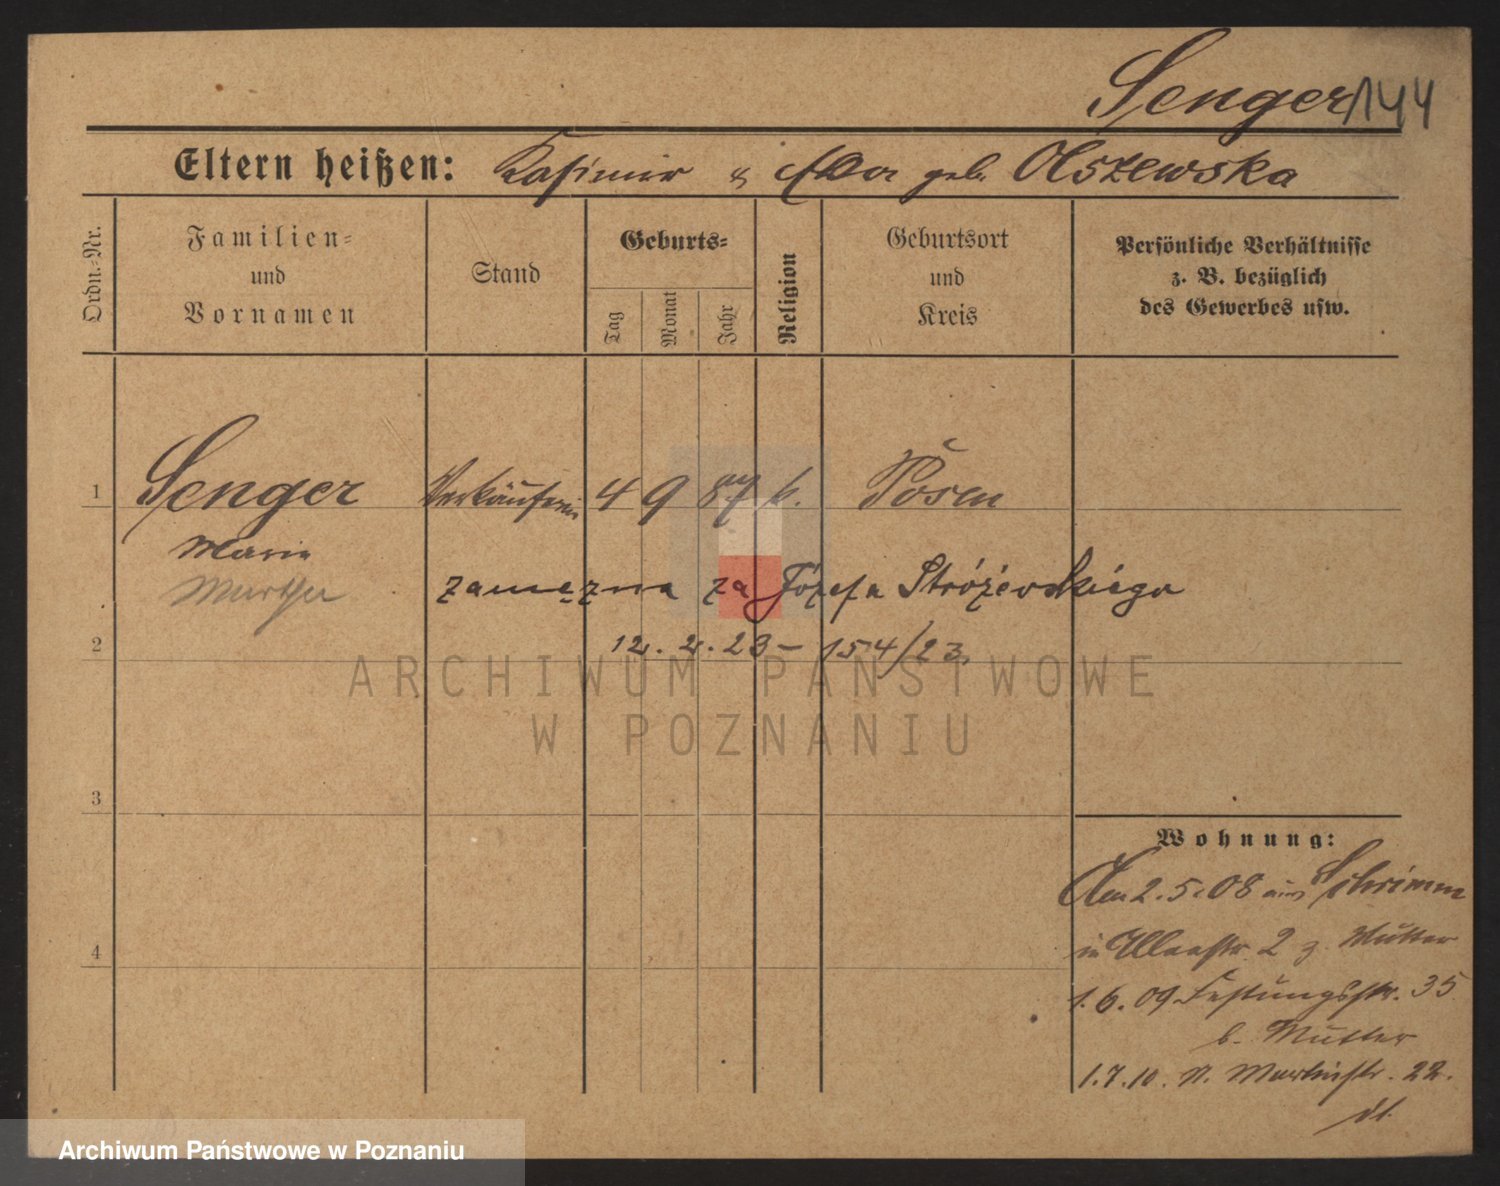 Senger 144
Eltern heißen: Kasimir & Eva geb. Olszewska
Ordn.-Nr.
Familien-
und
Vornamen
Stand
Geburts-
Tag
Monat
Jahr
Religion
Geburtsort
und
Kreis
Persönliche Verhältnisse
z. B. bezüglich
des Gewerbes usw.
1 Senger Verkäuferin 4 9 87 k. Posen
Marie
Martha
zamężna za Józefa Stróżewskiego
2
12. 2. 23 – 154/23.
ARCHIWUM PAŃSTWOWE
W POZNANIU
3
Wohnung:
Am 2.5.08 aus Schrimm
4
in 2 z. Mutter
1.6.09 Festungsstr. 35
b. Mutter
1.7.10. St. Martinstr. 22.
Archiwum Państwowe w Poznaniu